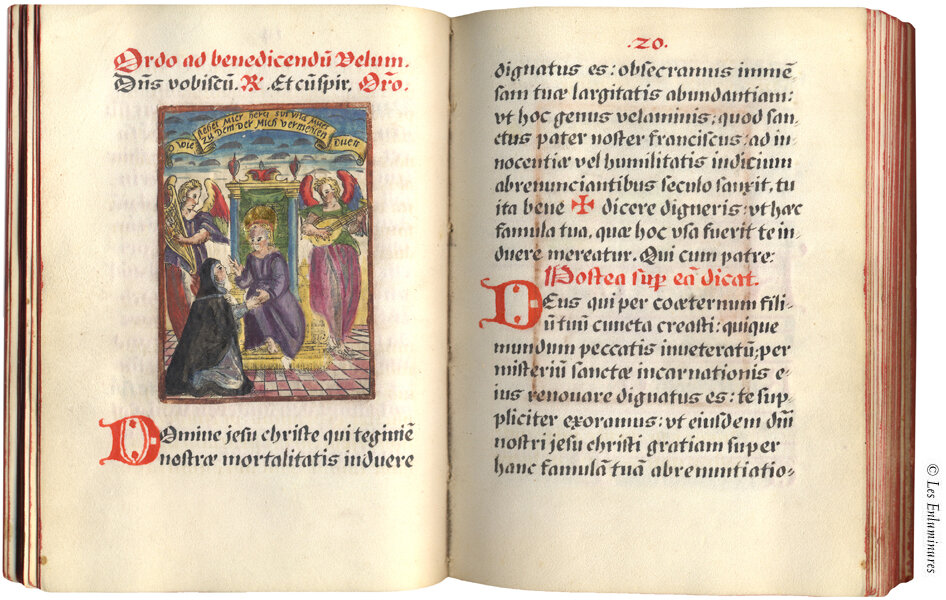 Ordo ad benedicendũ Velum.
Dñs vobiscũ. R. Et cũ spir. Orõ.
Dem Der Mich
Domine jesu christe qui tegimẽ
nostræ mortalitatis induere
.20.
dignatus es: obsecramus immẽ
sam tuæ largitatis abundantiam:
vt hoc genus velaminis; quod san-
ctus pater noster franciscus, ad in-
nocentiæ vel humilitatis indicium
abrenunciantibus seculo sanxit, tu
ita bene ✠ dicere digneris: vt hæc
famula tua, quæ hoc vsa fuerit te in-
duere mereatur. Qui cum patre:
Postea sup eã dicat.
Deus qui per coæternum fili-
ũ tuũ cuncta creasti: quique
mundum peccatis inveteratũ; per
misterium sanctæ incarnationis e-
ius renouare dignatus es: te sup-
pliciter exoramus: vt eiusdem dñi
nostri jesu christi gratiam super
hanc famulã tuã abrenuntiatio-
© Les Enluminures